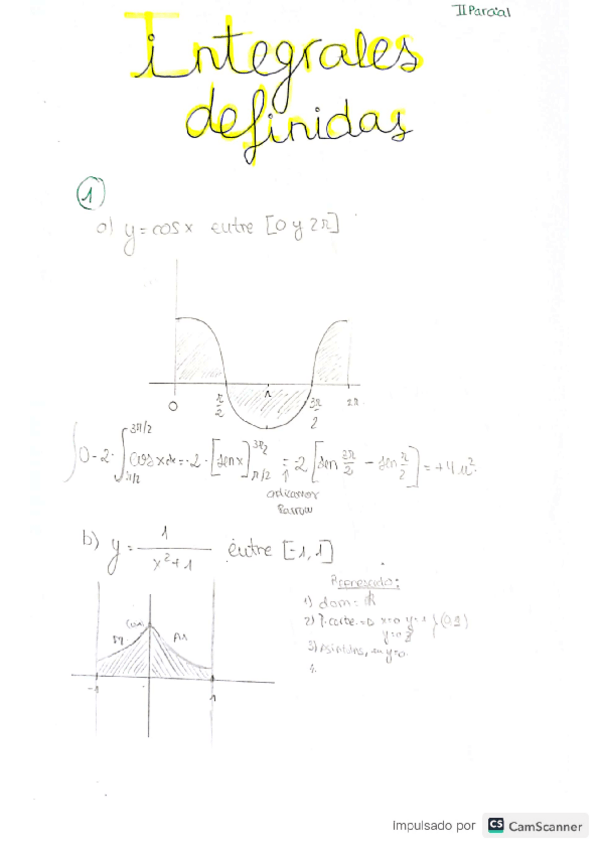 II Parcial
Integrales
definidas
1
a) y = cos x entre [0 y 2π]
0 π/2 π 3π/2 2π
∫0 - 2 · ∫π/2 3π/2 cos x dx = -2 · [sen x]π/2 3π/2 = -2 [sen 3π/2 - sen π/2] = +4 u².
Barrow
b) y = 1/(x²+1) entre [-1, 1]
1) dom = ℝ
2) P. corte x=0 y=1 } (0,1)
y=0
3) Asíntotas, en y=0.
4.
-1 1
Impulsado por CS CamScanner